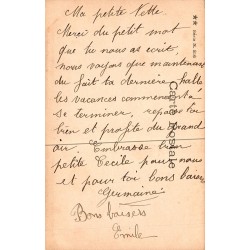 Ma petite
Merci du petit mot
que tu nous as ecrit,
nous voyons que maintenant
du fait ta dernière
les vacances commencent à
se terminer, repose toi
bien et profite du Grand
air. Embrasse bien
petite Cecile pour nous
et pour toi bons baisers
Germaine.
Bons baisers
Emile
Carte Postale